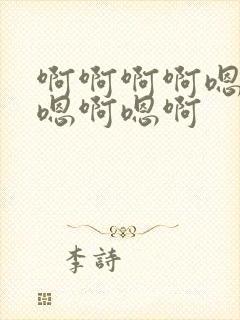 啊啊啊啊嗯
嗯啊嗯啊
李詩